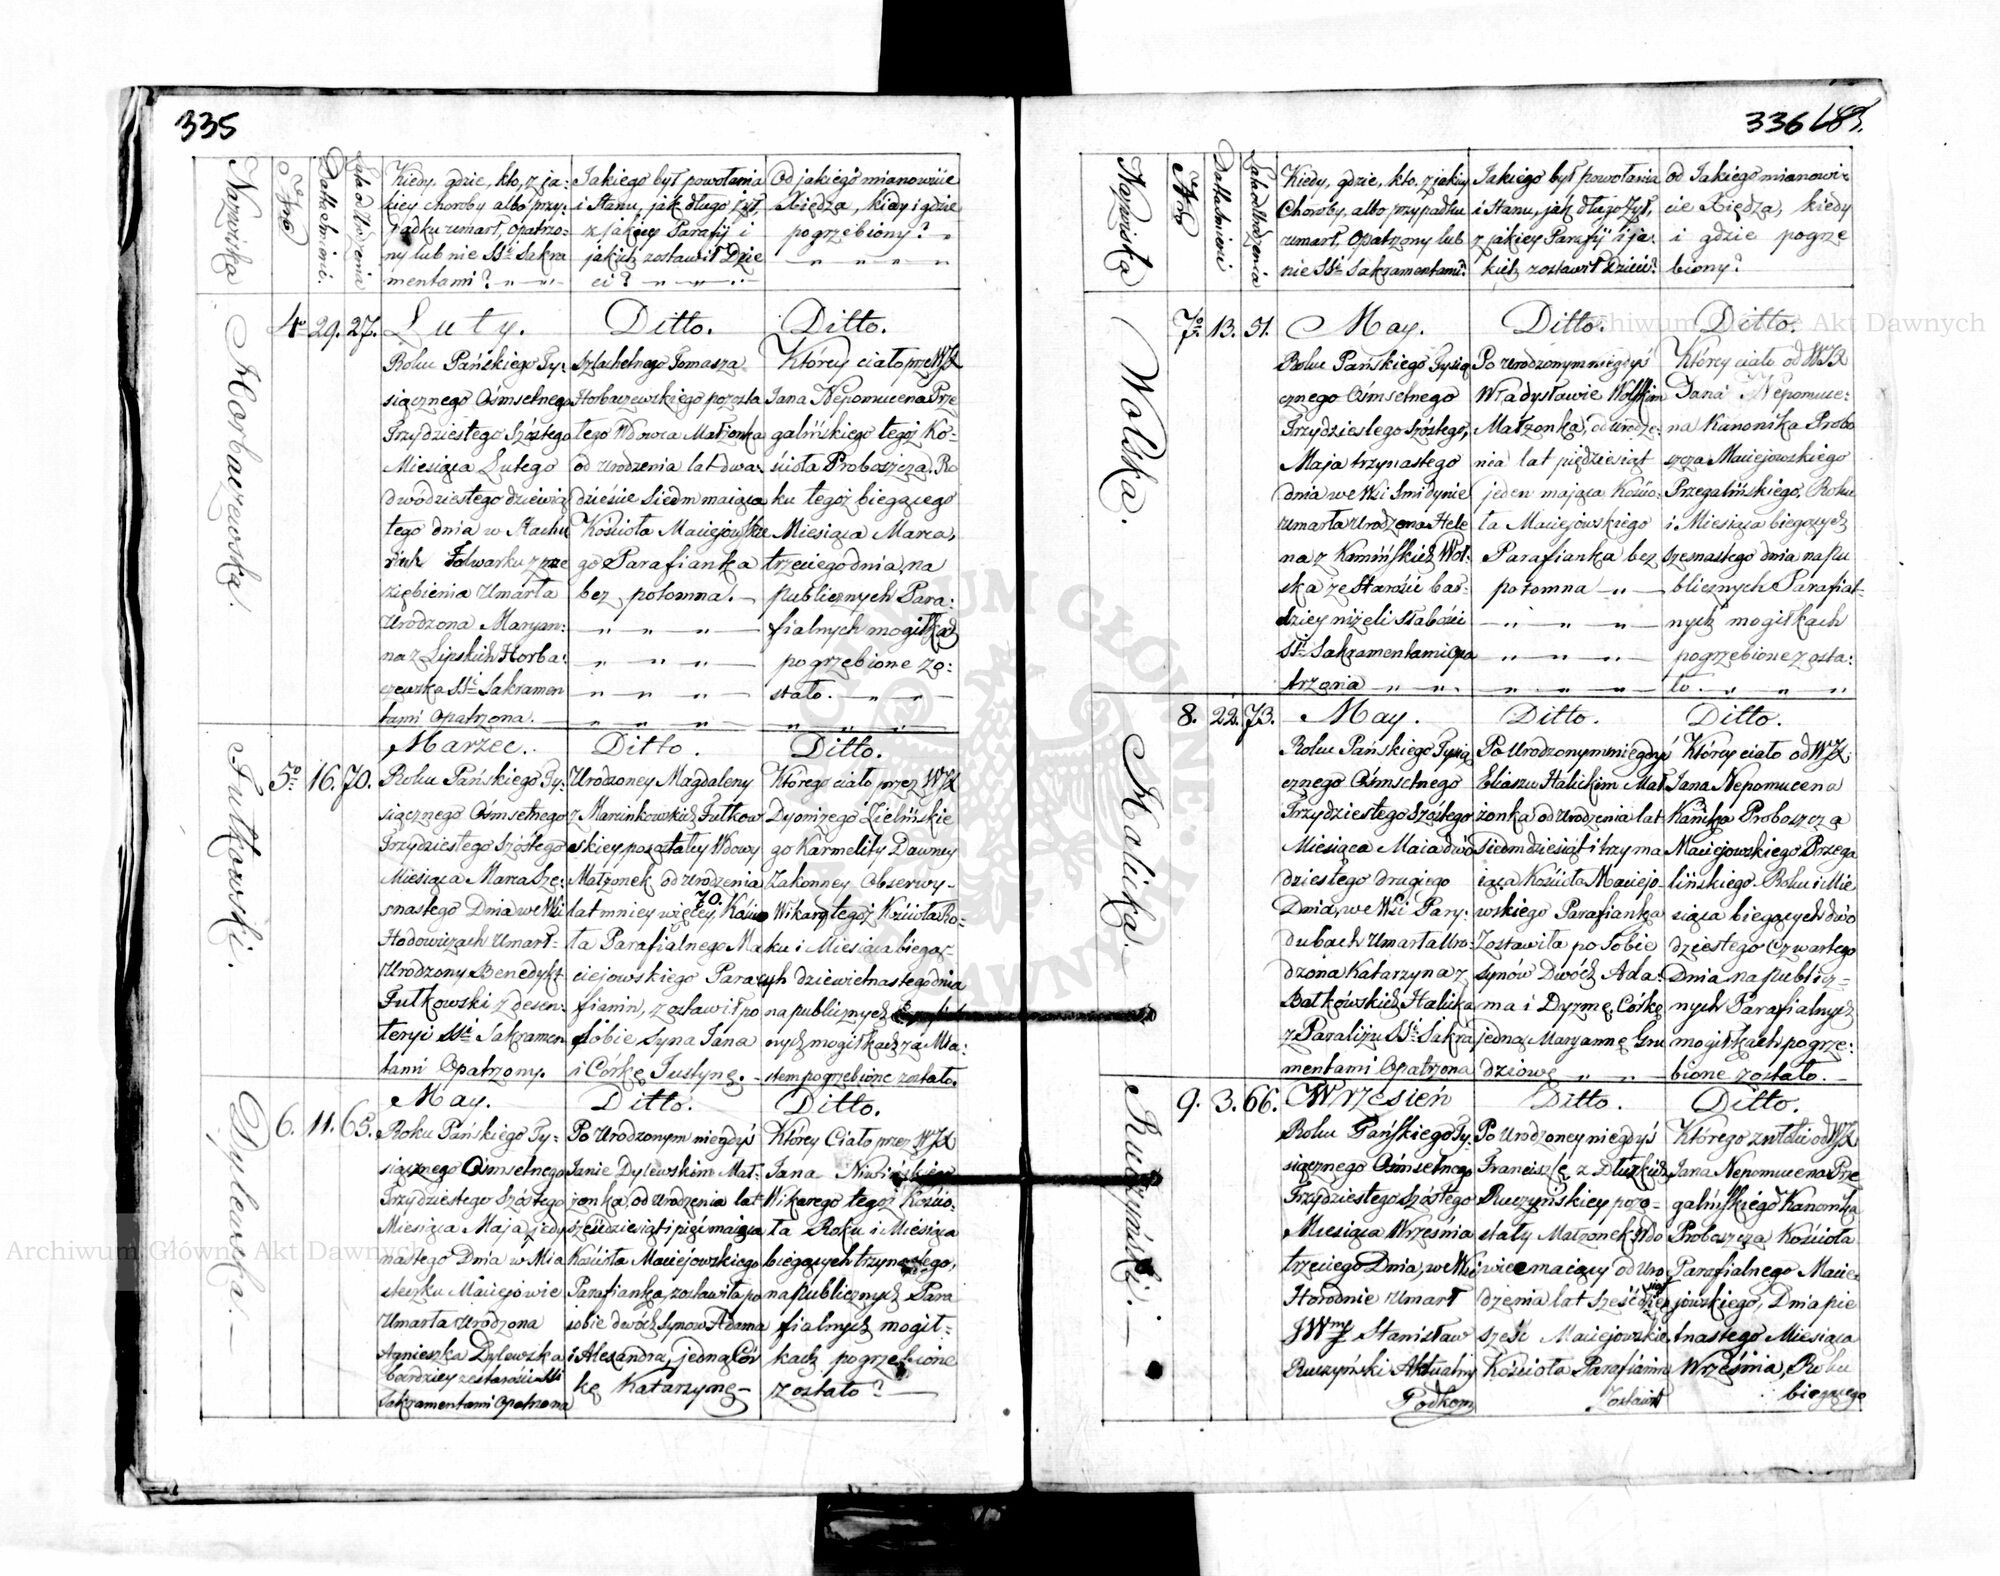 335
Nazwiska
Nro
Datta Śmierci.
Lata od Urodzenia
Kiedy, gdzie, kto, z ja:
kiey choroby albo przy:
padku umarł, opatrzo:
ny lub nie SS. Sakra
mentami?
Jakiego był powołania
i Stanu, jak długo żył,
z jakiey Parafij i
jakich zostawił Dzie
ci?
Od jakiego mianowicie
Xiędza, kiedy i gdzie
pogrzebiony?
Horbaczewska.
4to 29. 27.
Luty.
Roku Pańskiego Ty:
siącznego Ośmsetnego
Trzydziestego Szóstego
Miesiąca Lutego
dwódziestego dziewią
tego dnia w Stachu
Folwarku z prze
ziębienia Umarła
Urodzona Maryan:
na z Lipskich Horba:
czewska SS. Sakramen
tami Opatrzona.
Ditto.
Szlachetnego Tomasza
Horbaczewskiego pozosta
łego Wdowca Małżonka
od urodzenia lat dwa:
dzieście Siedm maiąca
Kościoła Maciejowskie
go Parafianka
bez potomna.
Ditto.
Którey ciało prze WJX
Jana Nepomucena Prze
galińskiego tegoż Ko:
ścioła Proboszcza, Ro
ku tegoż biegącego
Miesiąca Marca,
trzeciego dnia, na
publicznych Para:
fialnych mogiłkach
pogrzebione zo:
stało.
Futkowski.
5to 16. 70.
Marzec.
Roku Pańskiego Ty:
siącznego Ośmsetnego
Trzydziestego Szóstego
Miesiąca Marca Sze:
snastego Dnia we Wsi
Hodowiczach Umarł
Urodzony Benedykt
Futkowski z desen:
teryi SS. Sakramen
tami Opatrzony.
Ditto.
Urodzoney Magdaleny
z Marcinkowskich Futkow
skiey pozostałey Wdowy
Małżonek od Urodzenia
lat mniey więcey 70. Kościo
ła Parafialnego Ma
ciejowskiego Para:
fianin, zostawił po
sobie Syna Jana
i Córkę Justynę.
Ditto.
Którego ciało przez WJX
Dyonizego Zielińskie
go Karmelity Dawney
Zakonney Obserwy
Wikarą tegoż Kościoła Ro:
ku i Miesiąca biegąc:
ych dziewietnastego dnia
na publicznych
nych mogiłkach za Mia:
stem pogrzebione zostało.
Dylewska.
6. 11. 65.
May.
Roku Pańskiego Ty:
siącznego Ośmsetnego
Trzydziestego Szóstego
Miesiąca Maja jedy
nastego Dnia w Mia
steczku Maciejowie
Umarła Urodzona
Agnieszka Dylewska
bardziey ze starości SS
Sakramentami Opatrzona
Ditto.
Po Urodzonym niegdyś
Janie Dylewskim Mał:
żonka, od Urodzenia lat
sześćdziesiąt i pięć maiąca
Kościoła Maciejowskiego
Parafianka, zostawiła po
sobie dwóch Synow Adama
i Alexandra, jedną Cór
kę Katarzynę
Ditto.
Którey Ciało przez WJX
Jana
Wikarego tegoż Kościo:
ła Roku i Miesiąca
biegących trzynastego,
na publicznych Para
fialnych mogił:
kach pogrzebione
zostało?
336
183.
Nazwiska
Nro
Datta Śmierci
Lata od Urodzenia
Kiedy, gdzie, kto, z jakiey
Choroby, albo przypadku
umarł, Opatrzony lub
nie SS. Sakramentami?
Jakiego był powołania
i Stanu, jak długo żył,
z jakiey Parafij i ja:
kich zostawił Dzieci?
od Jakiego mianowi:
cie Xiędza, kiedy
i gdzie pogrze
biony?
Wolska.
7mo 13. 51.
May.
Roku Pańskiego Tysią
cznego Ośmsetnego
Trzydziestego Szóstego,
Maja trzynastego
dnia we Wsi Smidynie
Umarła Urodzona Hele
na z Kamińskich Wol:
ska ze Starości bar:
dziey niżeli Słabości
SS. Sakramentami Opa
trzona
Ditto.
Po Urodzonym niegdyś
Władysławie Wolskim
Małżonka, od urodze:
nia lat pięćdziesiąt
jeden mająca Kościo:
ła Maciejowskiego
Parafianka bez
potomna
Ditto.
Którey ciało od WJX
Jana Nepomuce:
na Kanonika Probo
szcza Maciejowskiego
Przegalińskiego, Roku
i Miesiąca biegących
szesnastego dnia na pu
blicznych Parafial:
nych mogiłkach
pogrzebione zosta:
ło.
Halicka.
8. 22. 73.
May.
Roku Pańskiego Tysią
cznego Ośmsetnego
Trzydziestego Szóstego
Miesiąca Maia dwó
dziestego drugiego
Dnia, we Wsi Pary:
dubach Umarła Uro:
dzona Katarzyna z
Bałkowskich Halicka
z Paraliżu SS. Sakra
mentami Opatrzona
Ditto.
Po Urodzonym niegdyś
Eliaszu Halickim Mał
żonka od Urodzenia lat
Siedmdziesiąt i trzy ma
iąca Kościoła Maciejo:
wskiego Parafianka
Zostawiła po Sobie
synów Dwóch Ada:
ma i Dyzmę, Córkę
jedną Maryannę Gru
dziowę
Ditto.
Którey ciało od WJX
Jana Nepomucena
Kanka Proboszcza
Maciejowskiego Przega
lińskiego Roku i Mie
siąca biegących dwó
dziestego Czwartego
Dnia na public:
nych Parafialnych
mogiłkach pogrze:
bione zostało.
Ruczyński.
9. 3. 66.
Wrzesień
Roku Pańskiego Ty:
siącznego Ośmsetnego
Trzydziestego Szóstego
Miesiąca Września
trzeciego Dnia, we Wsi
Horodnie Umarł
JWny Stanisław
Ruczyński Aktualny
Podkom
Ditto.
Po Urodzoney niegdyś
Franciszce z Dłuskich
Ruczyńskiey pozo:
stały Małżonek Wdo
wiec maiący od Uro
dzenia lat sześćdziesiąt
sześć Maciejowskie
Kościoła Parafianin
Zostawił
Ditto.
Którego zwłoki od WJX
Jana Nepomucena Prze
galińskiego Kanonika
Proboszcza Kościoła
Parafialnego Macie:
jowskiego, Dnia pie
tnastego Miesiąca
Września, Roku
biegącego
Archiwum Główne Akt Dawnych
Archiwum Główne Akt Dawnych
ARCHIWUM GŁÓWNE AKT DAWNYCH